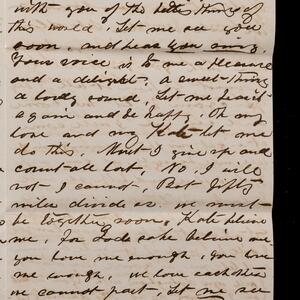 with you of the better things of
this world. Let me see you
soon, and hear you sing.
Your voice is to me a pleasure
and a delight, a sweet thing
a lovely sound. Let me hear it
again and be happy. Oh my
love and my Kate let me
do this. Must I give up and
count all lost, No, I will
not I cannot, But fifty
miles divides us, we must
be together soon, Kate believe
me, for Gods sake believe me,
you love me enough, you love
me enough, we love each other
we cannot part, Let me see